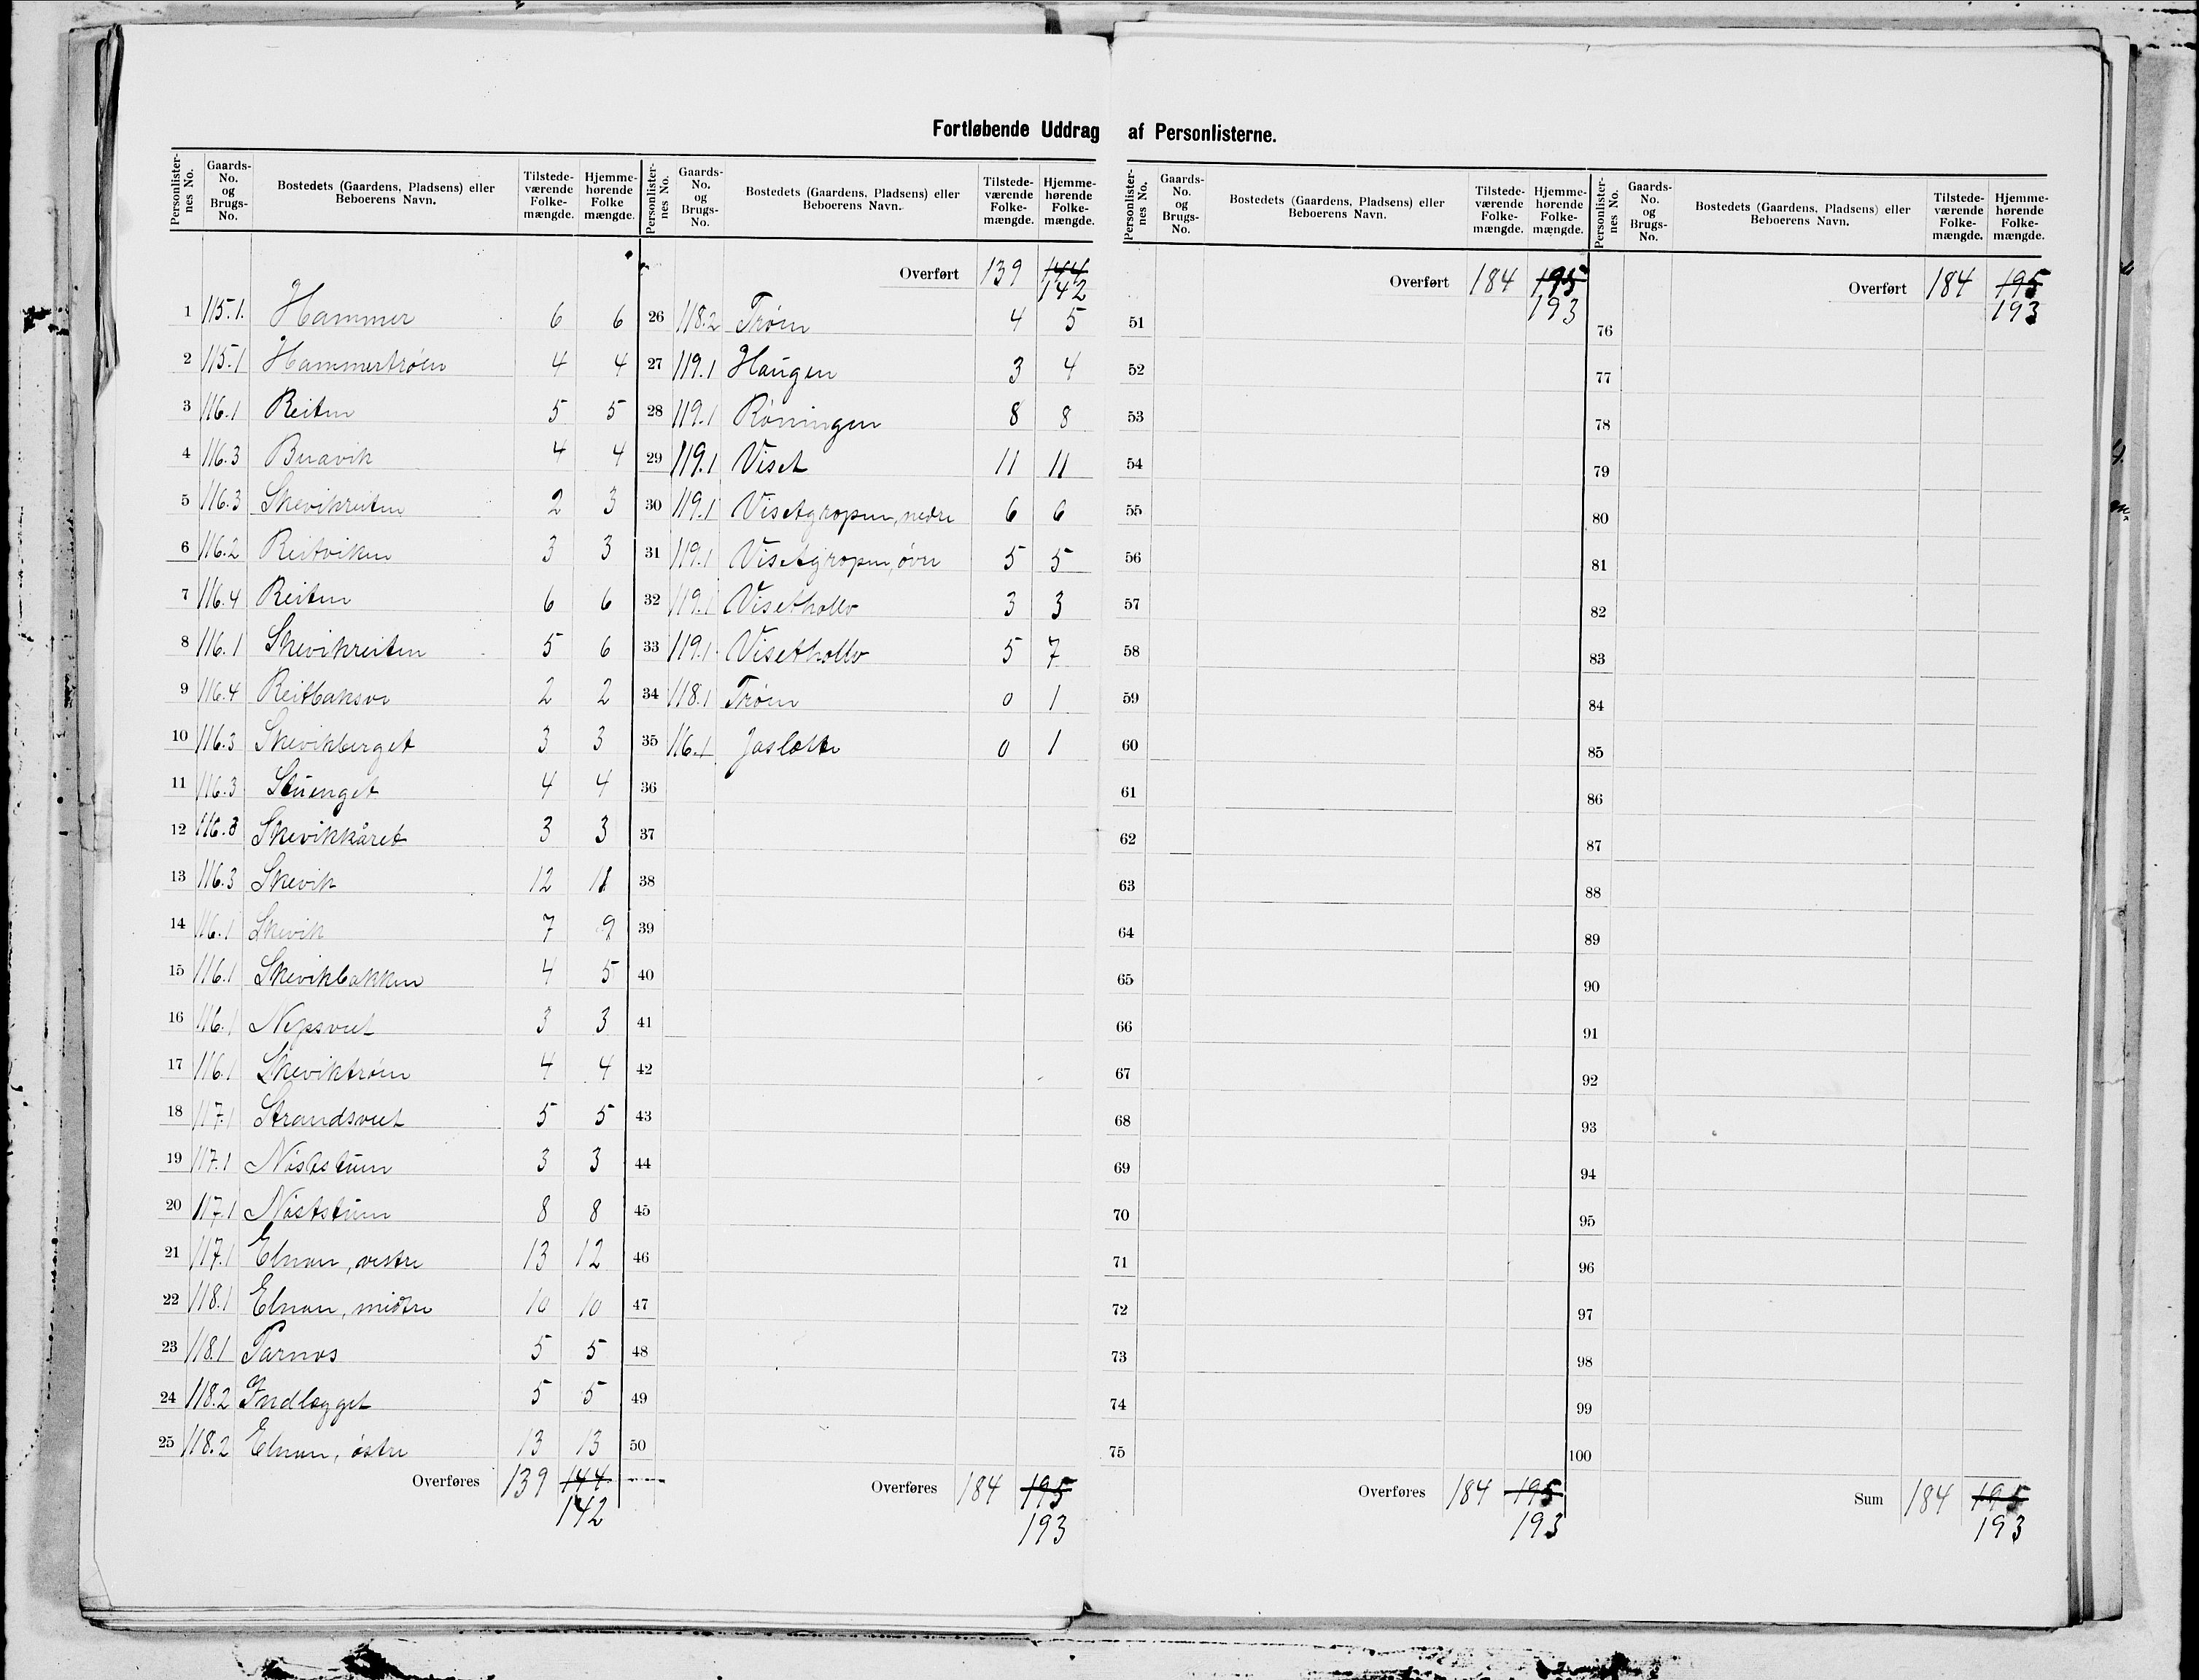 Fortløbende Uddrag af Personlisterne.
Personlisternes No. Gaards-No. og Brugs-No. Bostedets (Gaardens, Pladsens) eller Beboerens Navn. Tilstedeværende Folkemængde. Hjemmehørende Folke mængde.
1 115.1. Hammer 6 6
2 115.1 Hammertrøen 4 4
3 116.1 Reiten 5 5
4 116.3 Buavik 4 4
5 116.3 Skevikreiten 2 3
6 116.2 Reitviken 3 3
7 116.4 Reiten 6 6
8 116.1 Skevikreiten 5 6
9 116.4 Reitbaksve 2 2
10 116.3 Skevikberget 3 3
11 116.3 Stuenget 4 4
12 116.3 Skevikkåret 3 3
13 116.3 Skevik 12
14 116.1 Skevik 7 9
15 116.1 Skevikbakken 4 5
16 116.1 Nepsveet 3 3
17 116.1 Skeviktrøen 4 4
18 117.1 Strandsveet 5 5
19 117.1 Nøststuen 3 3
20 117.1 Nøststuen 8 8
21 117.1 Elnan, vestre 13 12
22 118.1 Elnan, midtre 10 10
23 118.1 Tarnes 5 5
24 118.2 Indlægget 5 5
25 118.2 Elnan, østre 13 13
Overføres 139 144
142
Personlisternes No. Gaards-No. og Brugs-No. Bostedets (Gaardens, Pladsens) eller Beboerens Navn. Tilstedeværende Folkemængde. Hjemmehørende Folkemængde.
Overført 139 144
142
26 118.2 Trøen 4 5
27 119.1 Haugen 3 4
28 119.1 Røningen 8 8
29 119.1 Viset 11 11
30 119.1 Visetgropen, nedre 6 6
31 119.1 Visetgropen, øvre 5 5
32 119.1 Visethollo 3 3
33 119.1 Visethollo 5 7
34 118.1 Trøen 0 1
35 116.1 Jaslette 0 1
36
37
38
39
40
41
42
43
44
45
46
47
48
49
50
Overføres 184 195
193
Personlisternes No. Gaards-No. og Brugs-No. Bostedets (Gaardens, Pladsens) eller Beboerens Navn. Tilstedeværende Folkemængde. Hjemmehørende Folkemængde.
Overført 184 195
193
51
52
53
54
55
56
57
58
59
60
61
62
63
64
65
66
67
68
69
70
71
72
73
74
75
Overføres 184 195
193
Personlisternes No. Gaards-No. og Brugs-No. Bostedets (Gaardens, Pladsens) eller Beboerens Navn. Tilstedeværende Folkemængde. Hjemmehørende Folkemængde.
Overført 184 195
193
76
77
78
79
80
81
82
83
84
85
86
87
88
89
90
91
92
93
94
95
96
97
98
99
100
Sum 184 195
193